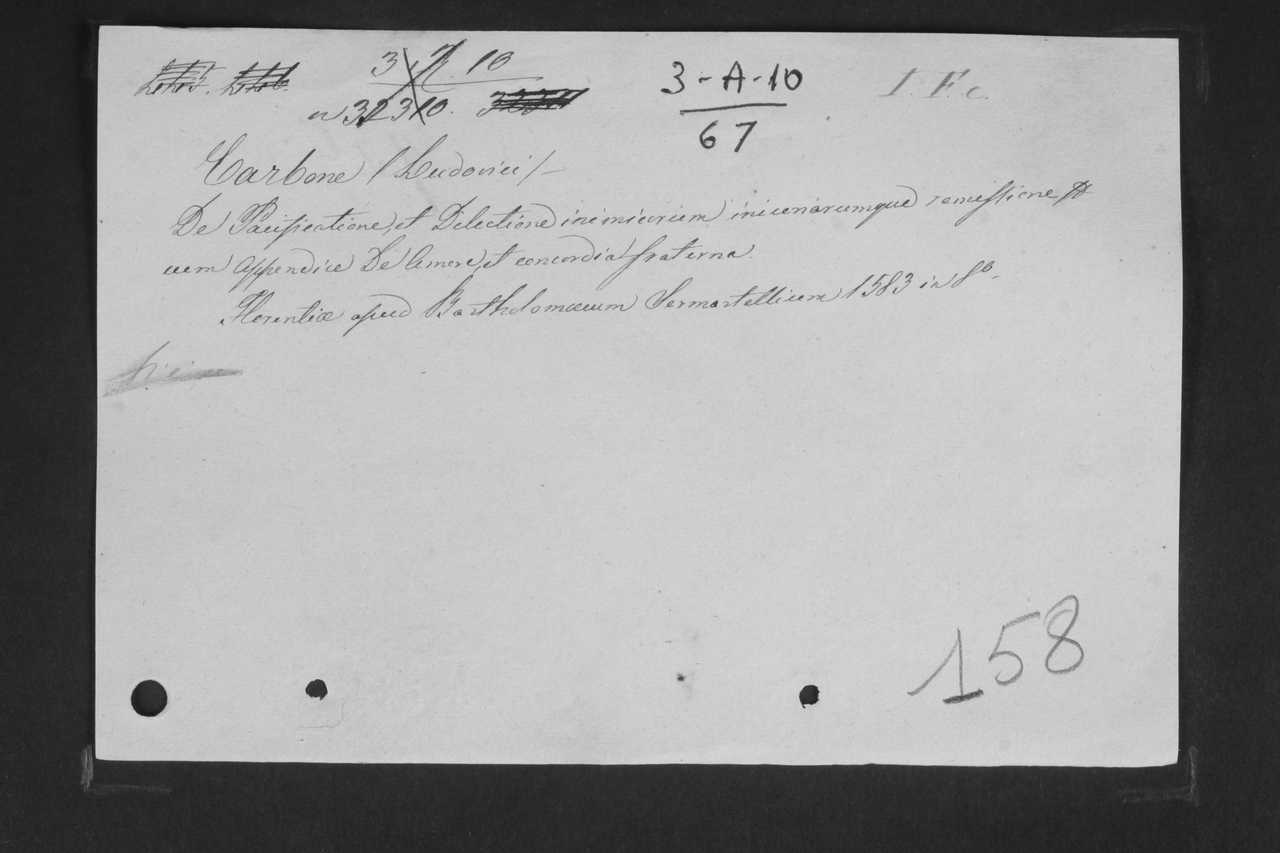 3 - A - 10
67
I. F. c.
Carbone / Ludovici / -
De Pacificatione, et Dilectione inimicorum iniuriarumque remissione
cum appendice De Amore, et concordia fraterna.
Florentiæ apud Bartholomæum Sermartellium 1583 in 8º -
158